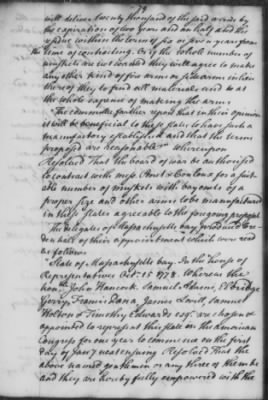 will deliver twenty thousand of the said arms by
the expiration of two years and an half and the
residue within the term of six or five years from
the time of contracting. Or if the whole number of
muskets are not wanted they will agree to make
any other kind of fire arms or side arms in lieu
there of they to find all materials and to at
the whole expence of making the arms
The committee farther report that in their opinion
it will be beneficial to these states to have such a
manufactory established and that the terms
proposed are reasonable whereupon
Resolved That the board of war be authorised
to contract with mess. Penet & Coulona for a suit
able number of muskets with bayonets of a
proper size and other arms to be manufactured
in these states agreeable to the foregoing proposal
The delegates of Massachusetts bay produced Cre
dentials of their appointment which were read
as follows
State of Massachusetts bay. In the house of
Representatives Oct. 15 1778. Whereas the
honble John Hancock, Samuel Adams, Elbridge
Gerry, Francis Dana, James Lovell, Samuel
Holton & Timothy Edwards esqrs. are chosen &
appointed to represent this state in the American
Congress for one year to commence on the first
day of Jany next ensuing Resolved That the
above named gentlemen or any three of them be
and they are hereby fully empowered with the